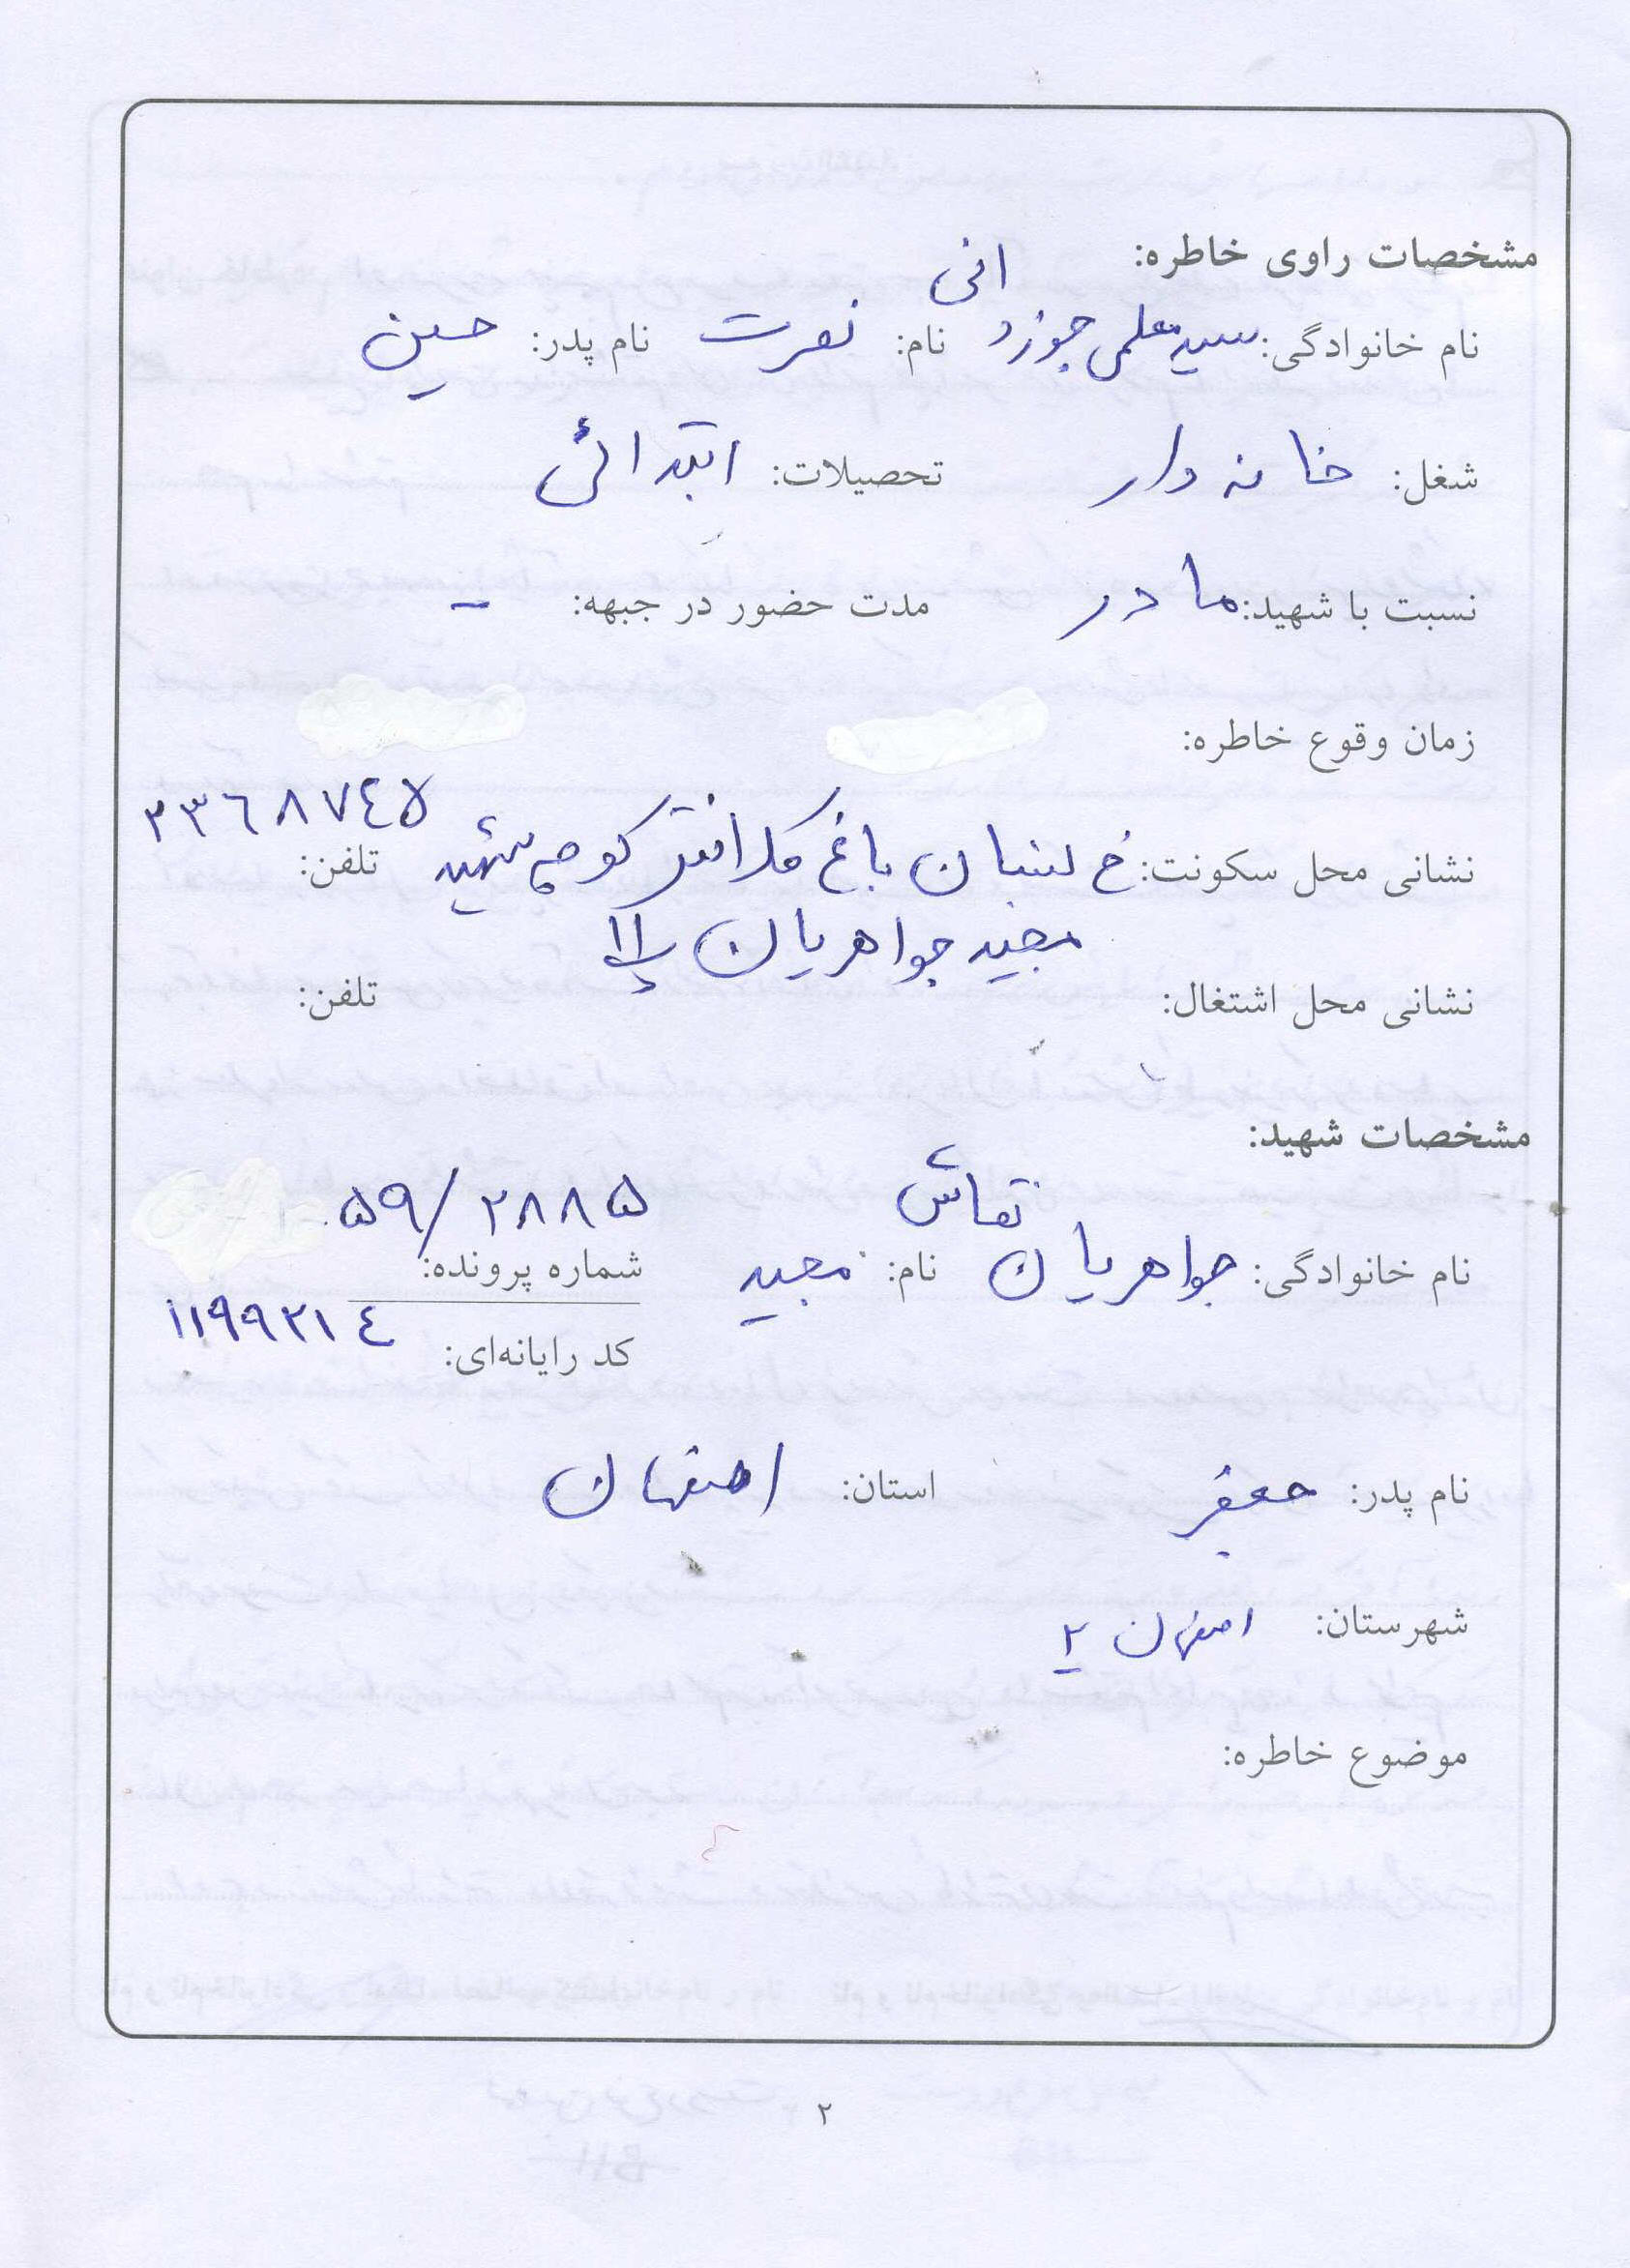 مشخصات راوی خاطره:
نام خانوادگی: سید معلمی جوزدانی نام: نصرت نام پدر: حسین
شغل: خانه دار تحصیلات: ابتدائی
نسبت با شهید: مادر مدت حضور در جبهه: -
زمان وقوع خاطره:
نشانی محل سکونت: خ لنبان باغ کلانتر کوچه شهید تلفن: ۲۳۶۸۷۴۵
مجید جواهریان پلاک ۱۱
نشانی محل اشتغال: تلفن:
مشخصات شهید:
نام خانوادگی: جواهریان نقاش نام: مجید شماره پرونده: ۵۹/۲۸۸۵
کد رایانه‌ای: ۱۱۹۹۲۱۴
نام پدر: جعفر استان: اصفهان
شهرستان: اصفهان ۲
موضوع خاطره:
۲